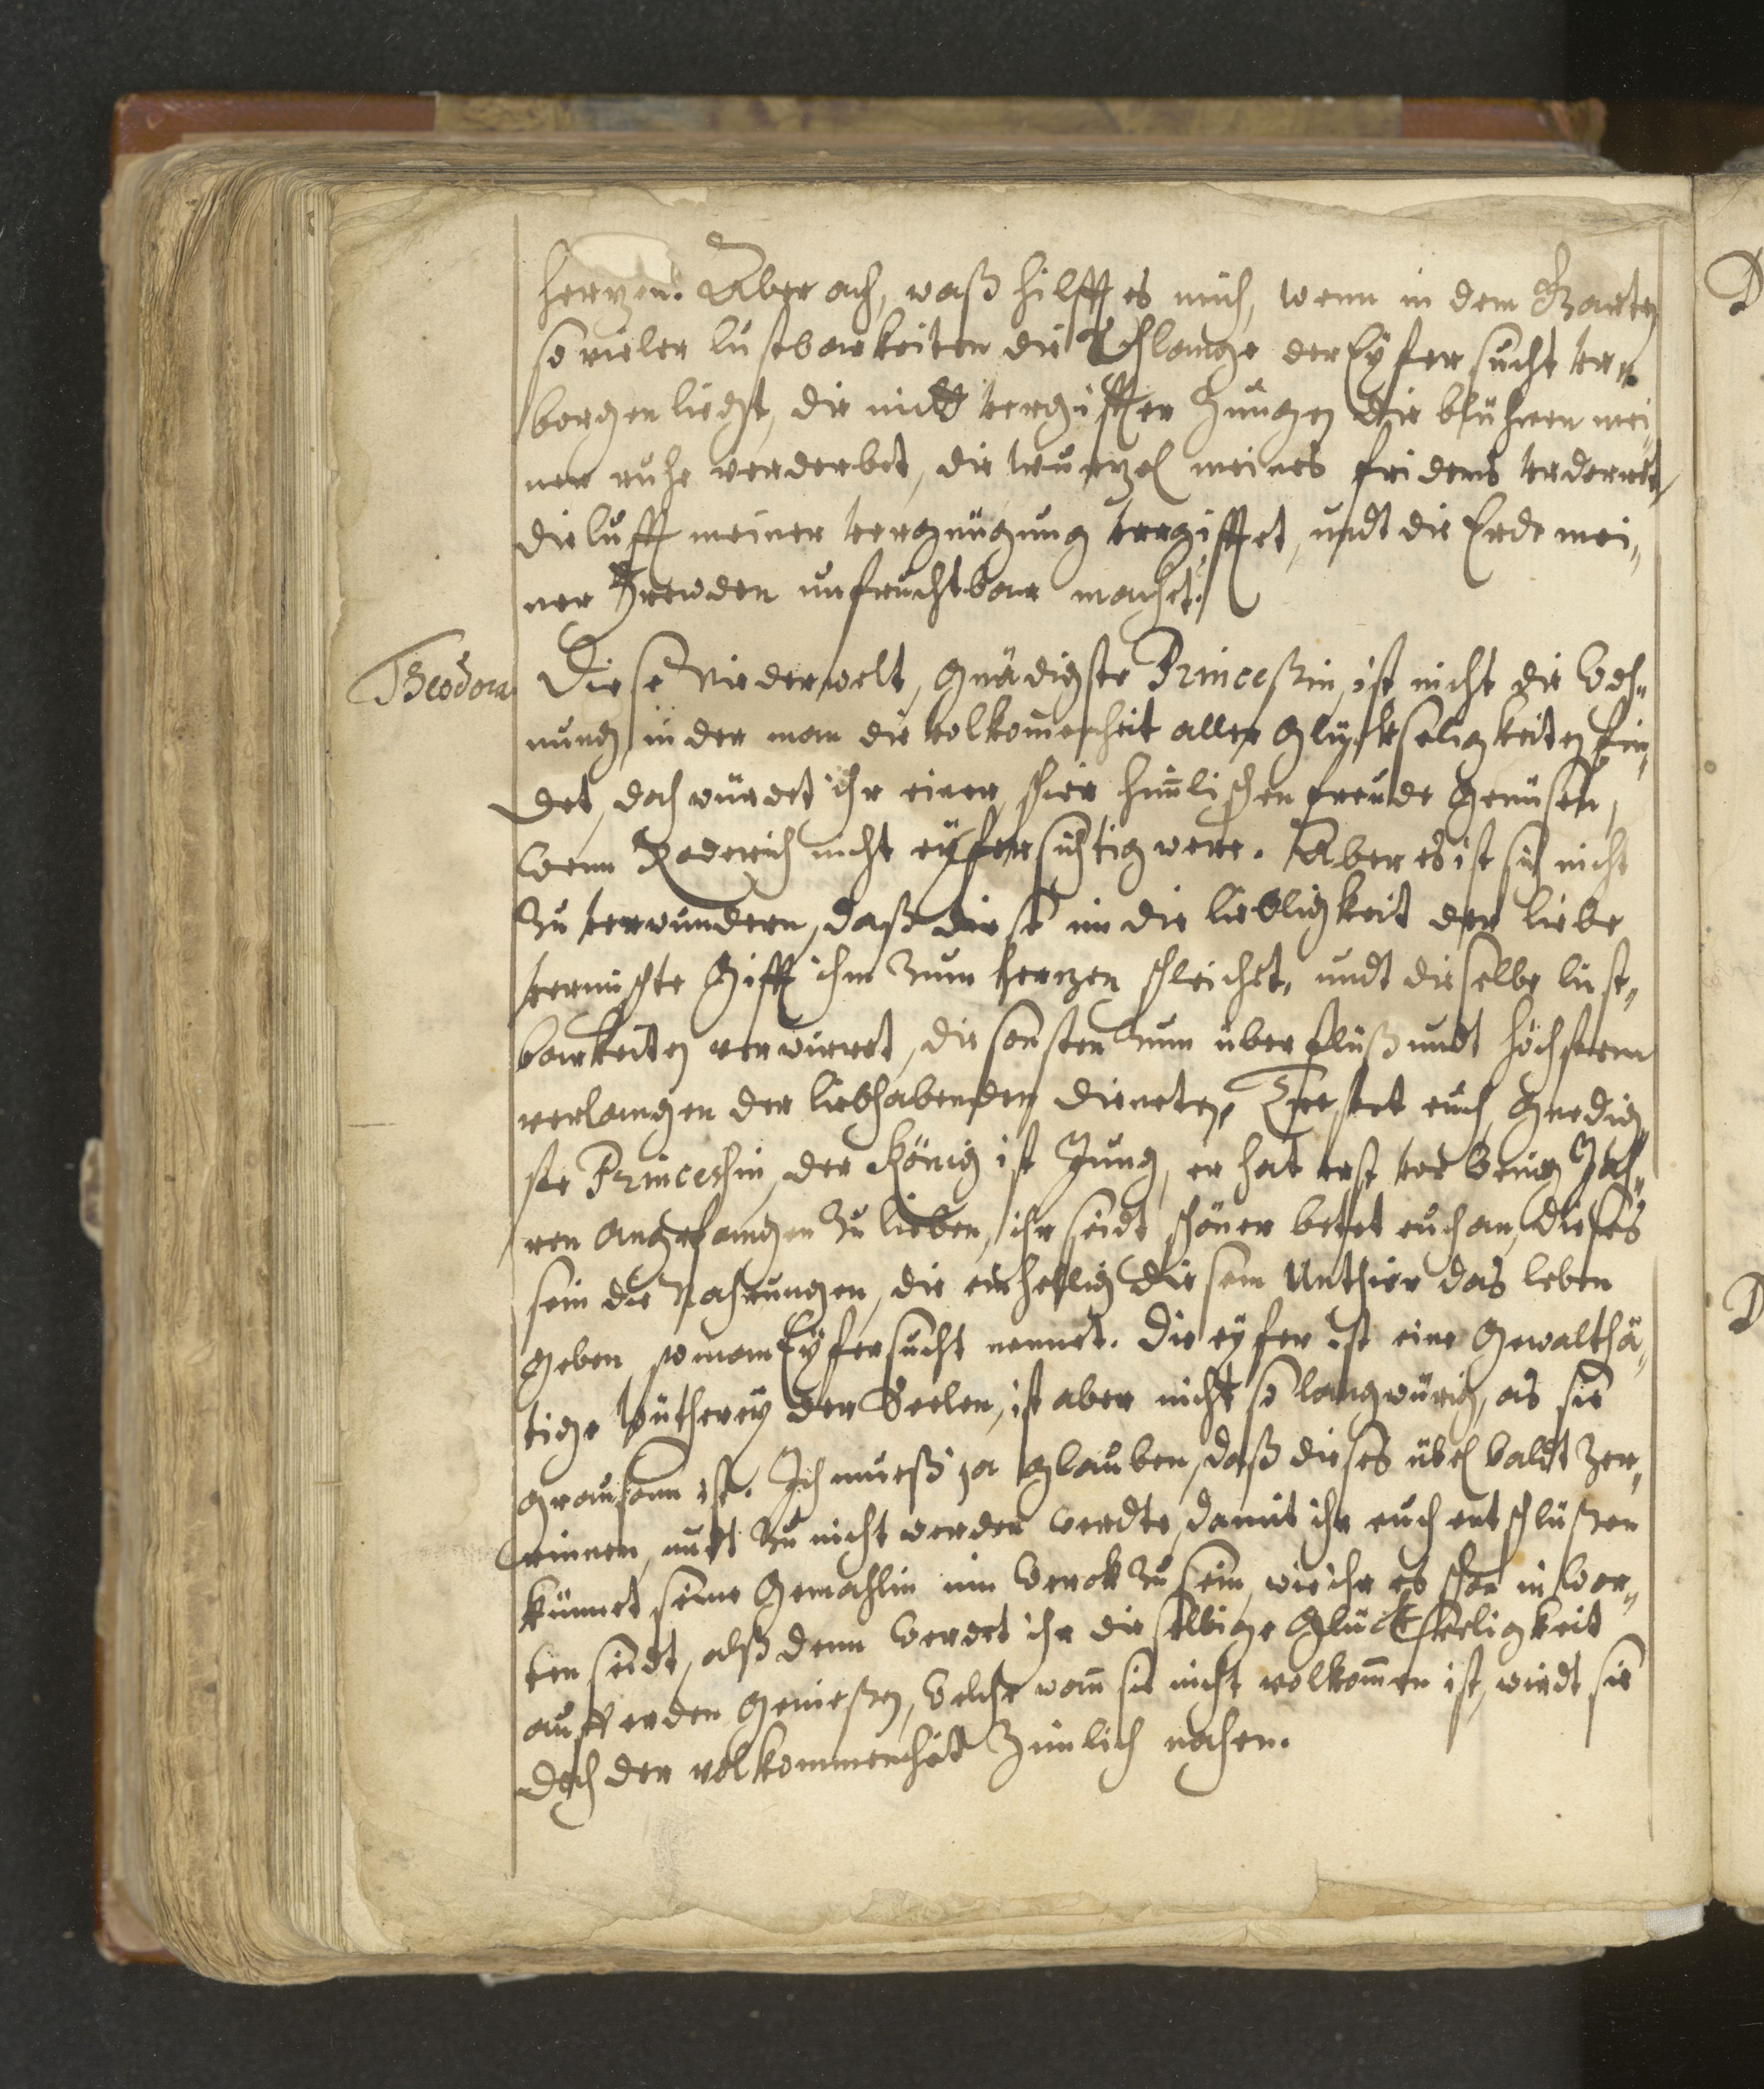 herzen. Aber ach, waß hilfft es mich, wenn in dem Garten
so vieler lustbarkeiten die Schlange der Eyfersucht ver„
borgen liegt, die mitt vergiffter Zungen die blühten mei„
ner ruhe verderbet, die wurzel meines fridens verderret,
die lufft meiner vergnügung vergifftet, undt die Erde mei„
ner Freuden unfruchtbar machet.
Theodora Diese Niederwelt, gnädigste Princeßin, ist nicht die Woh„
nung, in der man die volkom̅enheit aller glückseligkeiten fin„
det, doch würdet ihr einer schier him̅lischen freude genüsen,
wenn Roderich nicht eyfersichtig were. Aber es ist sich nicht
zu verwundern, daß diese in die liebligkeit der liebe
vermischte Gifft ihm zum herzen schleichet, undt dieselbe lust„
barkeiten verwirret, die sonsten zum überflüß undt höchstem
verlangen der liebhabenden dieneten. Tröstet euch, gnedig„
ste Princeshin, der König ist Jung, er hat erst vor wenig Jah„
ren angefangen zu lieben, ihr seidt schöner betet euch an, dieses
sein die Nahrungen, die einhellig diesem Unthier das leben
geben, so man Eyfersucht nennet. Die eyfer ist eine gewalthä„
tige wütherey der Seelen, ist aber nicht so langwürig, as sie
grausam ist. Ich mueß ja glauben, daß dieses übel baldt zer„
rinnen, undt zu nicht werden werdte, damit ihr euch entschlüßen
künnet, seine Gemahlin im Werck zu sein, wie ihr es schon in Wor„
ten seidt, alß denn werdet ihr dieselbige glückseeligkeit
auff erden genießen, welche wan̅ sie nicht volkom̅en ist, wirdt sie
doch der volkommenheit zimlich nahen.